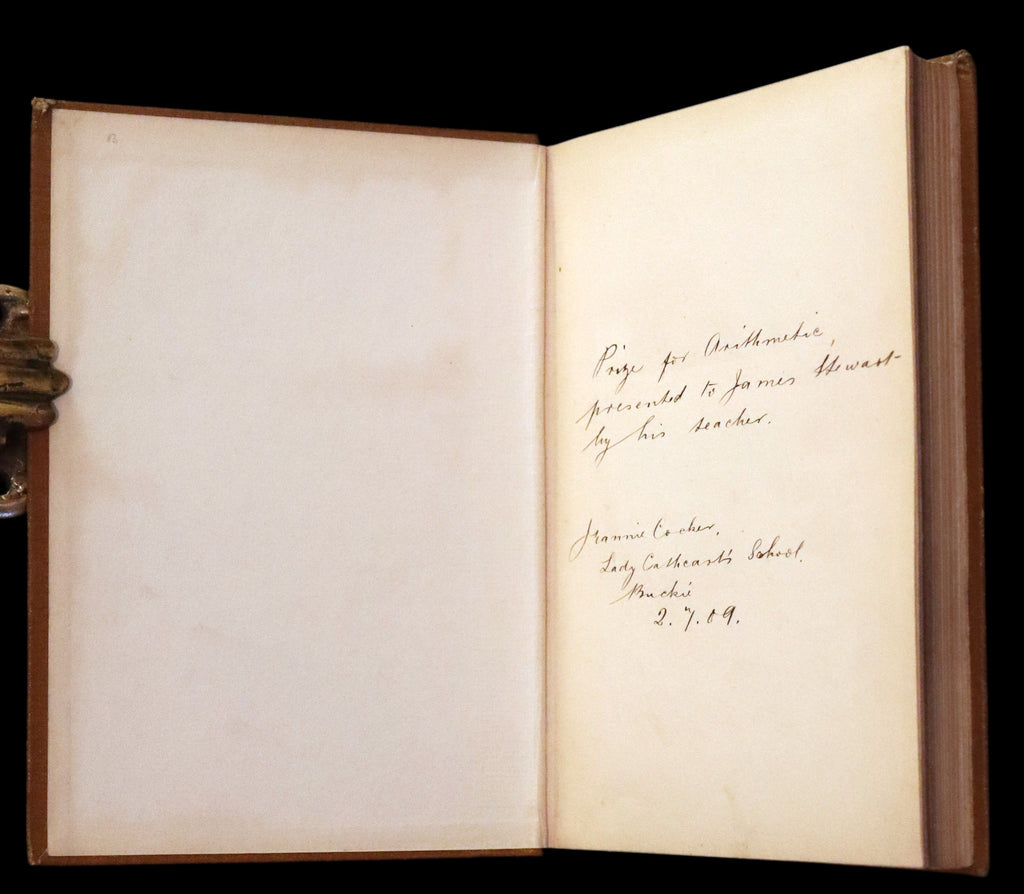 Prize for Arithmetic,
presented to James Stewart
by his teacher.
Jeannie Cocker,
Lady Cathcart's School.
Buckie
2.7.09.